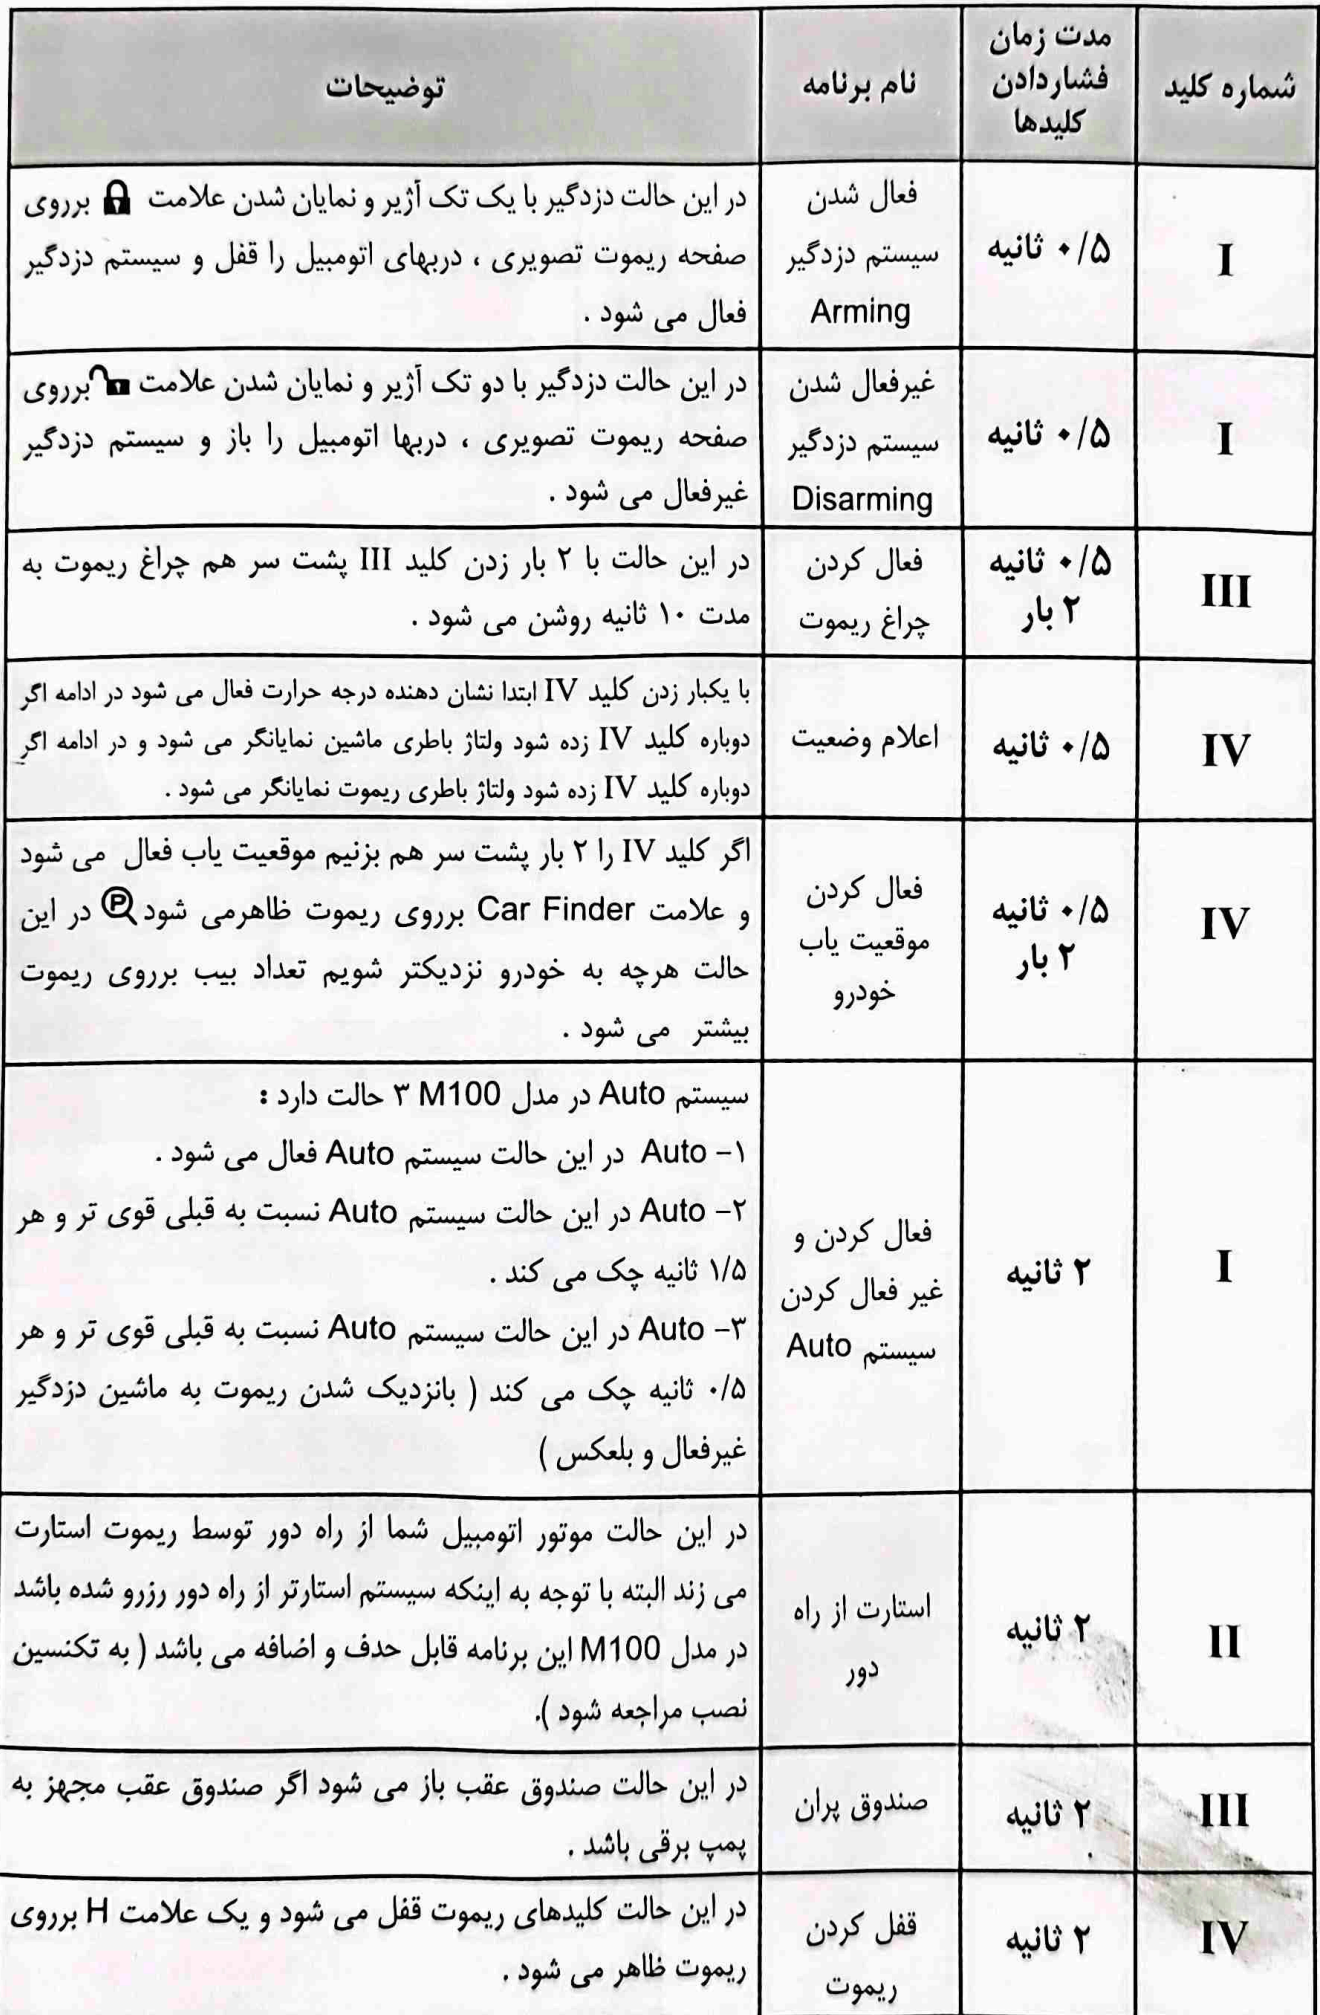 شماره کلید
مدت زمان
فشاردادن
کلیدها
نام برنامه
توضیحات
I
۰/۵ ثانیه
فعال شدن
سیستم دزدگیر
Arming
در این حالت دزدگیر با یک تک آژیر و نمایان شدن علامت برروی
صفحه ریموت تصویری ، دربهای اتومبیل را قفل و سیستم دزدگیر
فعال می شود .
I
۰/۵ ثانیه
غیرفعال شدن
سیستم دزدگیر
Disarming
در این حالت دزدگیر با دو تک آژیر و نمایان شدن علامت برروی
صفحه ریموت تصویری ، دربها اتومبیل را باز و سیستم دزدگیر
غیرفعال می شود .
III
۰/۵ ثانیه
۲ بار
فعال کردن
چراغ ریموت
در این حالت با ۲ بار زدن کلید III پشت سر هم چراغ ریموت به
مدت ۱۰ ثانیه روشن می شود .
IV
۰/۵ ثانیه
اعلام وضعیت
با یکبار زدن کلید IV ابتدا نشان دهنده درجه حرارت فعال می شود در ادامه اگر
دوباره کلید IV زده شود ولتاژ باطری ماشین نمایانگر می شود و در ادامه اگر
دوباره کلید IV زده شود ولتاژ باطری ریموت نمایانگر می شود .
IV
۰/۵ ثانیه
۲ بار
فعال کردن
موقعیت یاب
خودرو
اگر کلید IV را ۲ بار پشت سر هم بزنیم موقعیت یاب فعال می شود
و علامت Car Finder برروی ریموت ظاهرمی شود P در این
حالت هرچه به خودرو نزدیکتر شویم تعداد بیب برروی ریموت
بیشتر می شود .
I
۲ ثانیه
فعال کردن و
غیر فعال کردن
سیستم Auto
سیستم Auto در مدل M100 ۳ حالت دارد :
۱– Auto در این حالت سیستم Auto فعال می شود .
۲– Auto در این حالت سیستم Auto نسبت به قبلی قوی تر و هر
۱/۵ ثانیه چک می کند .
۳– Auto در این حالت سیستم Auto نسبت به قبلی قوی تر و هر
۰/۵ ثانیه چک می کند ( بانزدیک شدن ریموت به ماشین دزدگیر
غیرفعال و بلعکس )
II
۲ ثانیه
استارت از راه
دور
در این حالت موتور اتومبیل شما از راه دور توسط ریموت استارت
می زند البته با توجه به اینکه سیستم استارتر از راه دور رزرو شده باشد
در مدل M100 این برنامه قابل حدف و اضافه می باشد ( به تکنسین
نصب مراجعه شود ).
III
۲ ثانیه
صندوق پران
در این حالت صندوق عقب باز می شود اگر صندوق عقب مجهز به
پمپ برقی باشد .
IV
۲ ثانیه
قفل کردن
ریموت
در این حالت کلیدهای ریموت قفل می شود و یک علامت H برروی
ریموت ظاهر می شود .